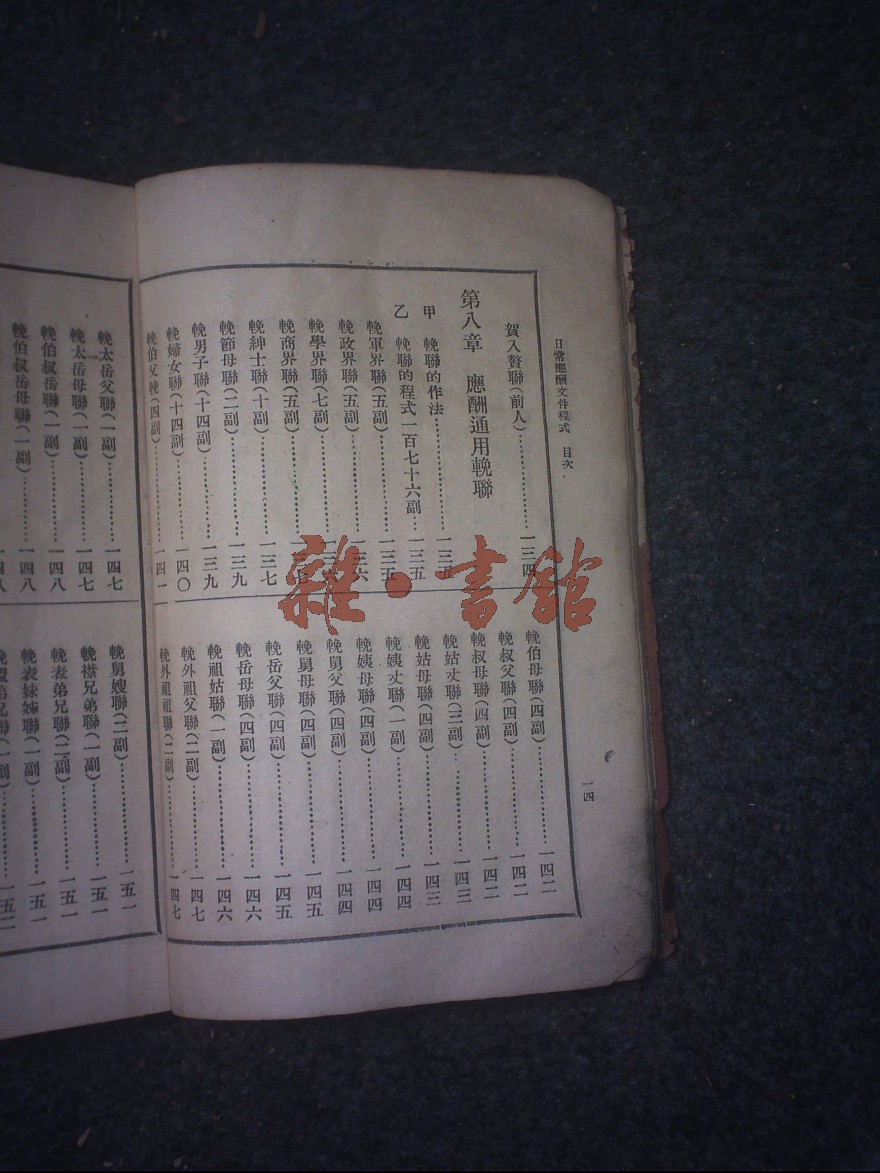 日常應酬文件程式　目次
一四
賀入贅聯（前人）…………一三四
第八章　應酬通用輓聯
甲　輓聯的作法…………一三五
乙　輓聯的程式一百七十六副…………一三五
輓軍界聯（五副）…………一三五
輓政界聯（五副）…………一三六
輓學界聯（七副）…………一三六
輓商界聯（五副）…………
輓紳士聯（十副）…………一三七
輓節母聯（二副）…………一三九
輓男子聯（十四副）…………一三九
輓婦女聯（十四副）…………一四〇
輓伯父輓（四副）…………一四二
輓伯母聯（四副）…………一四二
輓叔父聯（四副）…………一四二
輓叔母聯（四副）…………一四二
輓姑丈聯（三副）…………一四三
輓姑母聯（四副）…………一四三
輓姨丈聯（一副）…………一四四
輓姨母聯（四副）…………一四四
輓舅父聯（四副）…………一四四
輓舅母聯（四副）…………一四五
輓岳父聯（四副）…………一四五
輓岳母聯（四副）…………一四六
輓祖姑聯（一副）…………一四六
輓外祖父聯（二副）…………一四七
輓外祖祖聯（二副）…………一四七
輓太岳父聯（一副）…………一四七
輓太岳母聯（一副）…………一四七
輓伯叔岳聯（一副）…………一四八
輓伯叔岳母聯（一副）…………一四八
輓舅嫂聯（二副）…………一五一
輓襟兄弟聯（一副）…………一五一
輓表弟兄聯（二副）…………一五一
輓表妹姊聯（一副）…………一五一
弟兄聯（一副）…………一五二
雜·書館